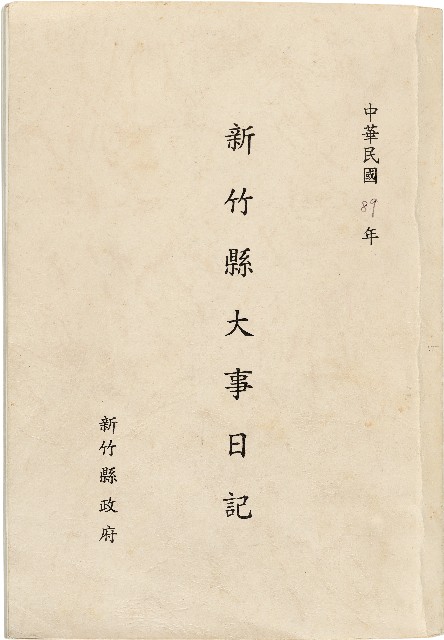 中華民國89年
新竹縣大事日記
新竹縣政府